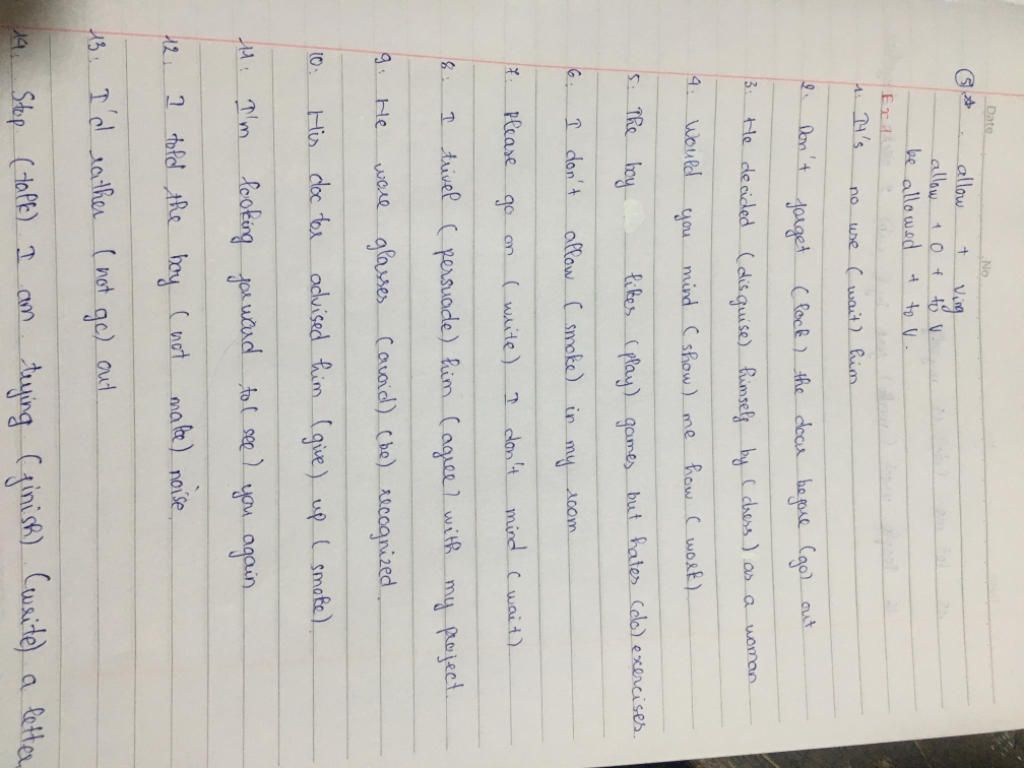 Date
No.
(5) * . allow + Ving
allow + O + to V
be allowed + to V.
Ex 1
1. It's no use (wait) him
2. Don't forget (lock) the door before (go) out
3. He decided (disguise) himself by (dress) as a woman
4. Would you mind (show) me how (work)
5. The boy likes (play) games but hates (do) exercises.
6. I don't allow (smoke) in my room
7. Please go on (write) I don't mind (wait)
8. I tired (persuade) him (agree) with my project.
9. He wore glasses (avoid) (be) recognized.
10. His doctor advised him (give) up (smoke).
11. I'm looking forward to (see) you again
12. I told the boy (not make) noise.
13. I'd rather (not go) out
14. Stop (talk) I am trying (finish) (write) a letter.